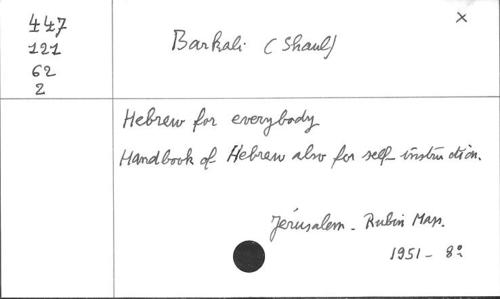 447
121
62
2
x
Barkali (Shaul)
Hebrew for everybody
Handbook of Hebrew also for self-instruction.
Jérusalem - Rubin Mass.
1951 - 8º